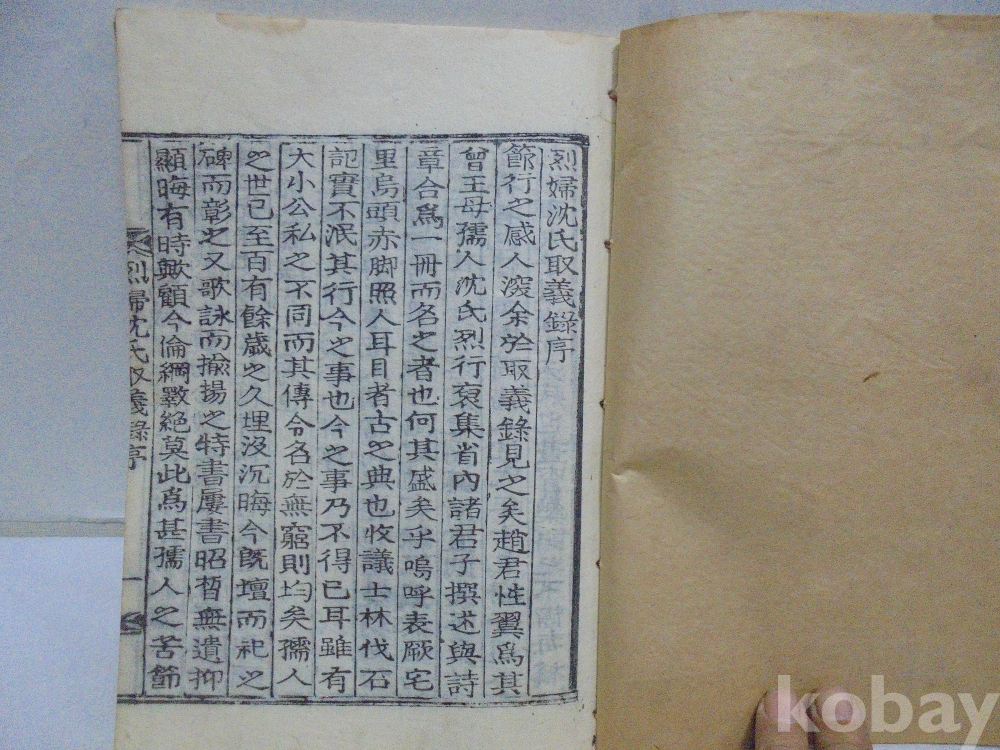 烈婦沈氏取義錄序
節行之感人深余於取義錄見之矣趙君性翼爲其
曾王母孺人沈氏烈行裒集省內諸君子撰述與詩
章合爲一冊而名之者也何其盛矣乎嗚呼表厥宅
里烏頭赤脚照人耳目者古之典也收議士林伐石
記實不泯其行今之事也今之事乃不得已耳雖有
大小公私之不同而其傳令名於無窮則均矣孺人
之世已至百有餘歲之久埋沒沉晦今旣壇而祀之
碑而彰之又歌詠而揄揚之特書屢書昭晳無遺抑
顯晦有時歟顧今倫綱斁絕莫此爲甚孺人之苦節
烈婦沈氏取義錄序 一
kobay